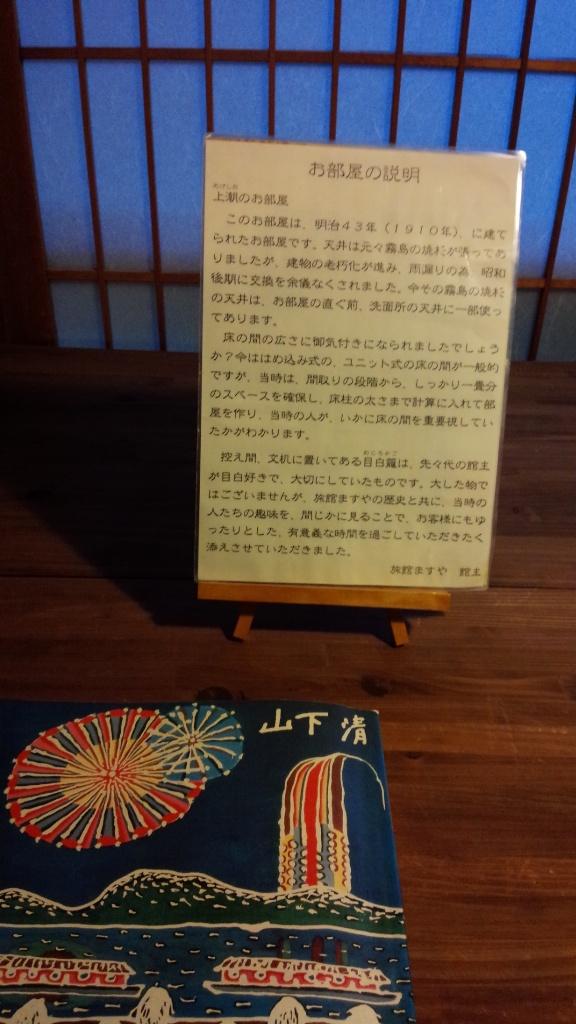 お部屋の説明
あげしお
上潮のお部屋
このお部屋は、明治43年(1910年)、に建て
られたお部屋です。天井は元々霧島の焼杉が張ってあ
りましたが、建物の老朽化が進み、雨漏りの為、昭和
後期に交換を余儀なくされました。今その霧島の焼杉
の天井は、お部屋の直ぐ前、洗面所の天井に一部使っ
てあります。
床の間の広さに御気付きになられましたでしょう
か?今ははめ込み式の、ユニット式の床の間が一般的
ですが、当時は、間取りの段階から、しっかり一畳分
のスペースを確保し、床柱の太さまで計算に入れて部
屋を作り、当時の人が、いかに床の間を重要視してい
たかがわかります。
めじろかご
控え間、文机に置いてある目白籠は、先々代の館主
が目白好きで、大切にしていたものです。大した物で
はございませんが、旅館ますやの歴史と共に、当時の
人たちの趣味を、間じかに見ることで、お客様にもゆ
ったりとした、有意義な時間を過ごしていただきたく
添えさせていただきました。
旅館ますや 館主
山下清